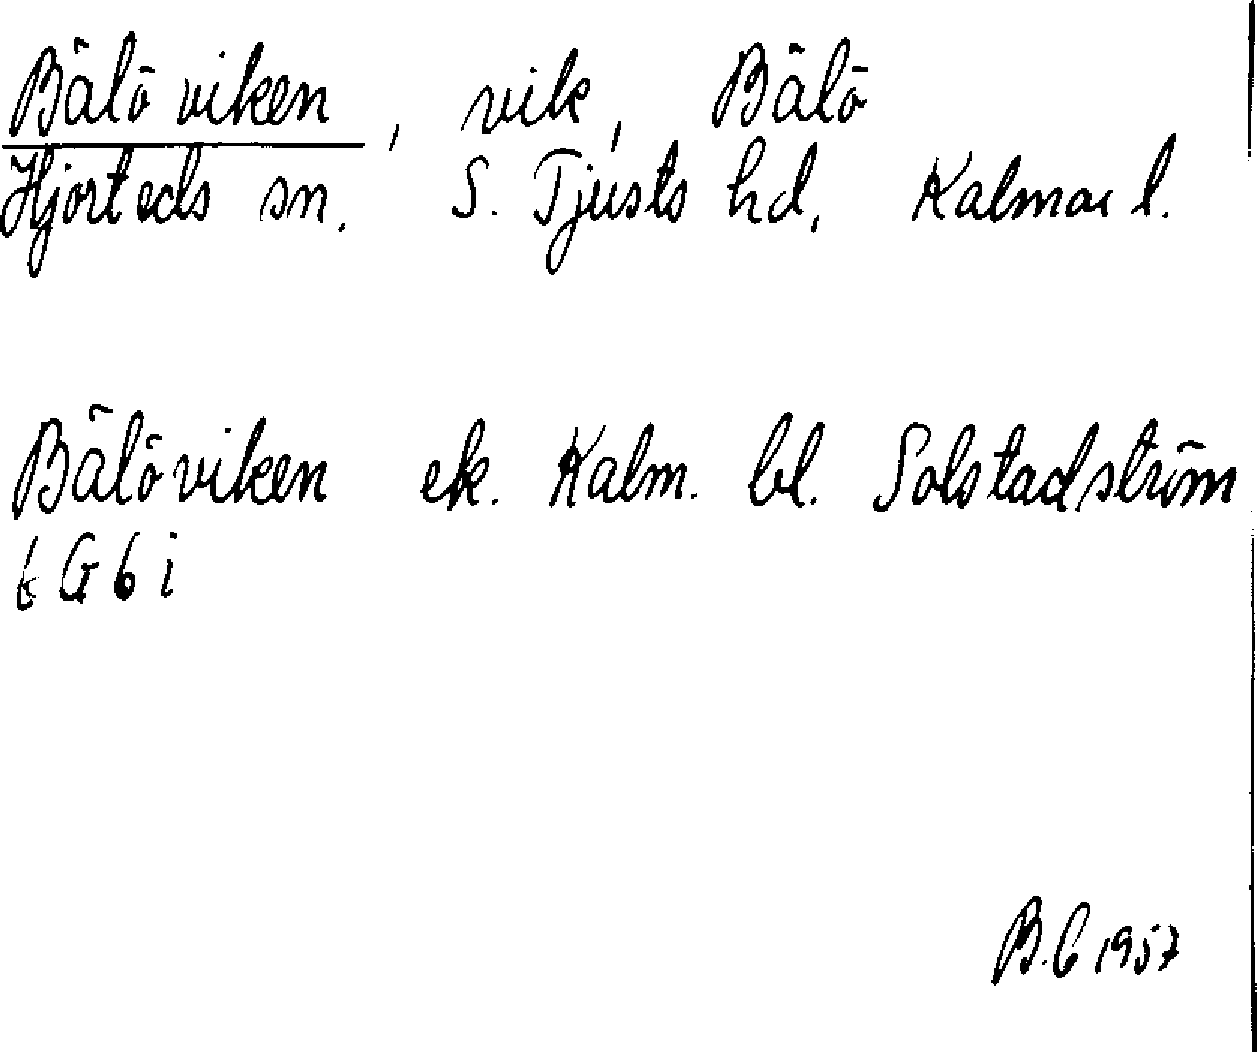 Bälö viken, vik, Bälö
Hjorteds sn. S. Tjusts hd, Kalmar l.
Bälöviken ek. Kalm. bl. Solstadström
6 G 6 i
B.C 1957